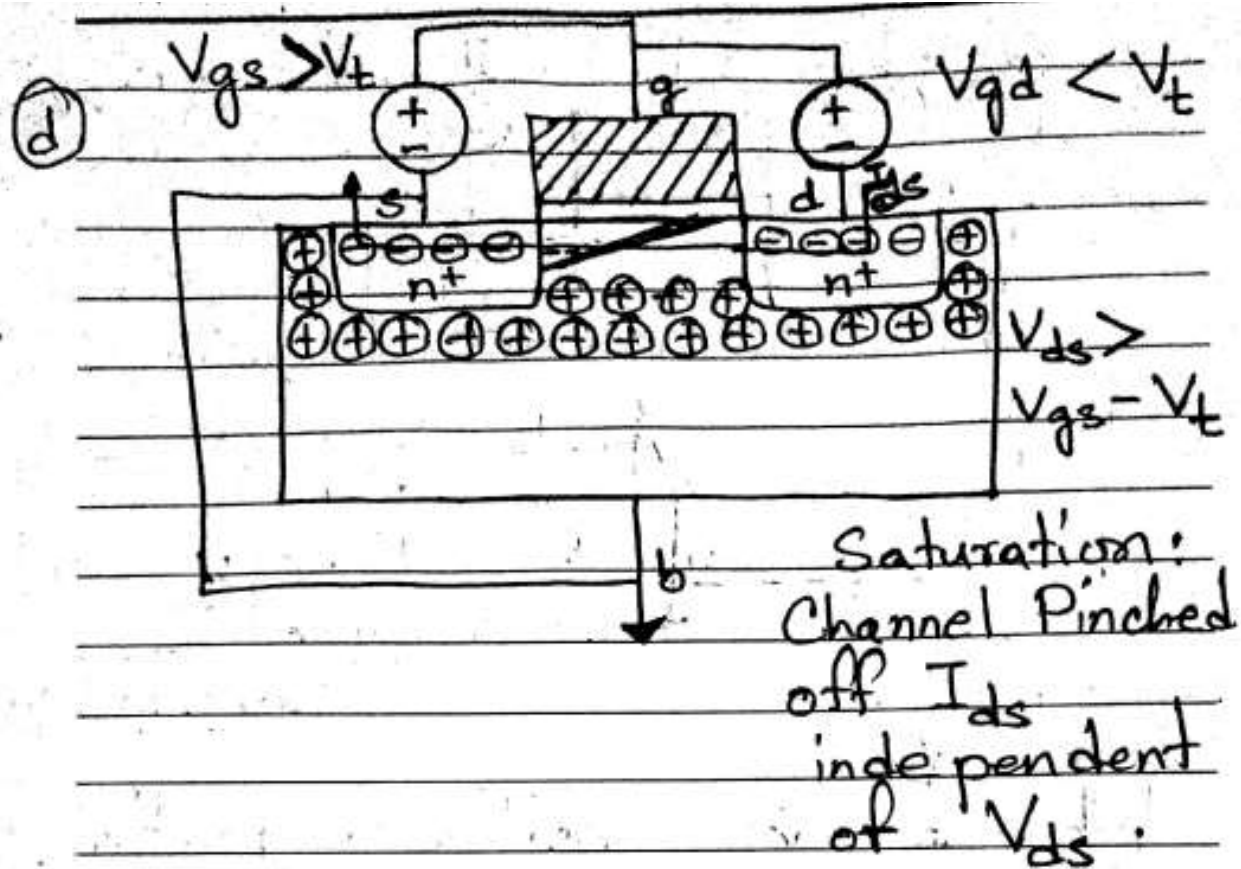 Vgs > Vt
Vgd < Vt
d
+
-
g
+
-
s
d
Ids
n+
n+
Vds >
Vgs - Vt
b
Saturation:
Channel Pinched
off Ids
independent
of Vds.